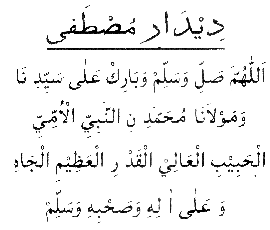 دِيْدَارِ مُصْطَفٰى
اَللّٰهُمَّ صَلِّ وَسَلِّمْ وَبَارِكْ عَلٰى سَيِّدِ نَا
وَمَوْلَانَا مُحَمَّدِ نِ النَّبِيِّ الْاُمِّيِّ
الْحَبِيْبِ الْعَالِيْ الْقَدْ رِ الْعَظِيْمِ الْجَاهِ
وَ عَلٰى اٰ لِهٖ وَصَحْبِهٖ وَسَلِّمْ